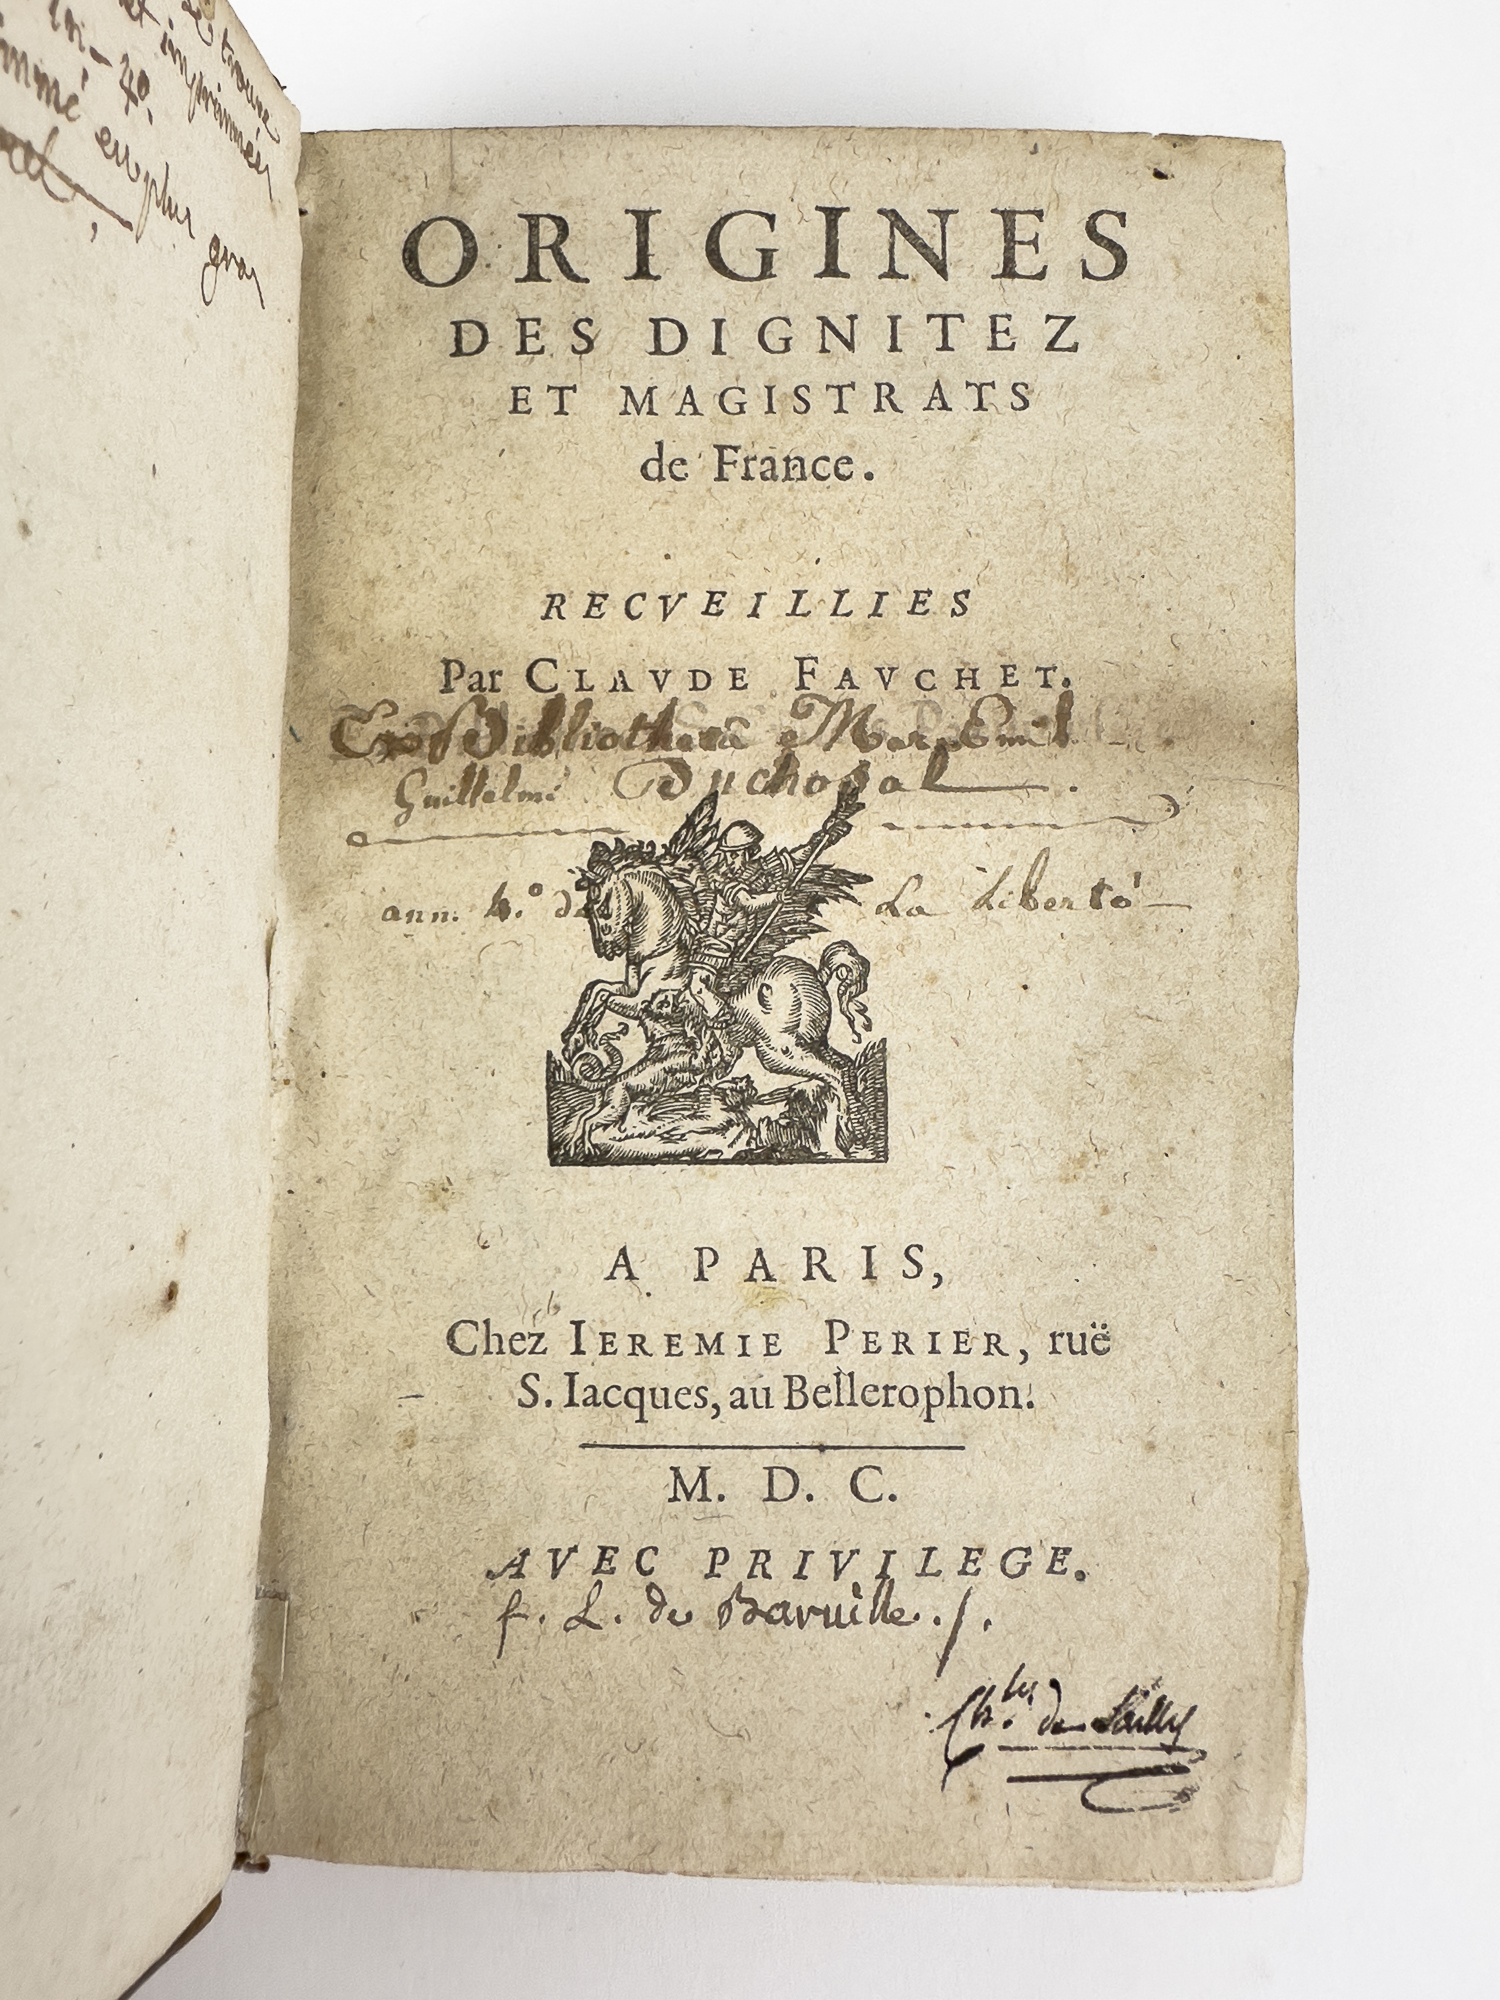 trouve
et imprimées
in-4º.
en plus gros
ORIGINES
DES DIGNITEZ
ET MAGISTRATS
de France.
RECVEILLIES
Par CLAVDE FAVCHET.
Bibliotheca
Guillelmi Duchosal
ann. 4.º de La Liberté
A PARIS,
Chez IEREMIE PERIER, ruë
S. Iacques, au Bellerophon.
M. D. C.
AVEC PRIVILEGE.
f. L. de Barville./.
Ch.les de